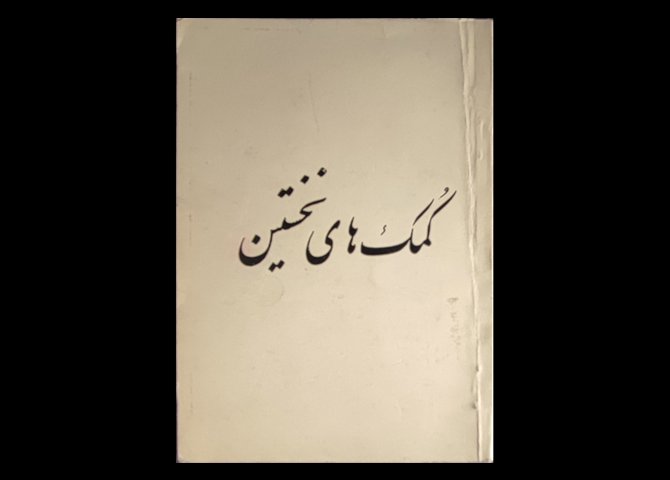 کُمک های نخستین